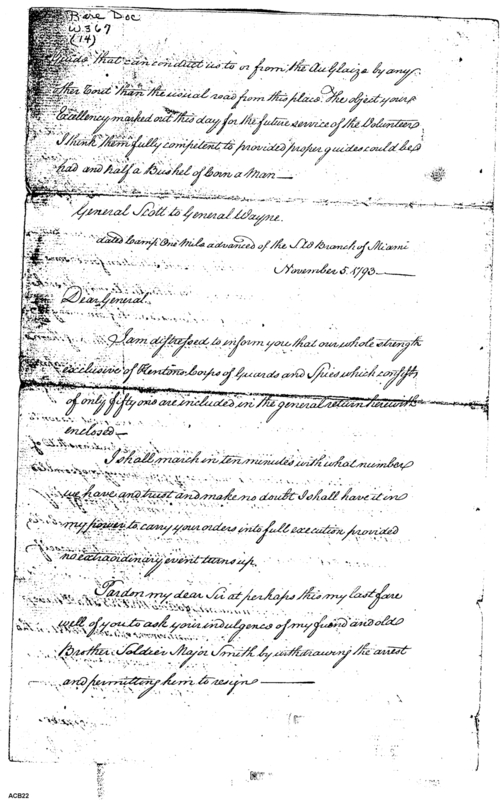 Rare Doc
W367
(14)
Guide that can conduct us to or from the Au Glaize by any
other Rout than the usual road from this place. The object your
Excellency marked out this day for the future service of the Volunteers
I think them fully competent to provided proper guides could be
had and half a Bushel of Corn a Man —
General Scott to General Wayne.
dated Camp One Mile advanced of the S.W Branch of Miami
November 5. 1793 —
Dear General.
I am distressed to inform you that our whole strength
exclusive of Kentons Corps of Guards and Spies which consists
of only fifty one are included in the general return herewith
enclosed —
I shall march in ten minutes with what number
we have and trust and make no doubt I shall have it in
my power to carry your orders into full execution provided
no extraordinary event turns up.
Pardon my dear Sir at perhaps this my last fare
well of you to ask your indulgence of my friend and old
Brother Soldier Major Smith by withdrawing the arrest
and permitting him to resign —
ACB22